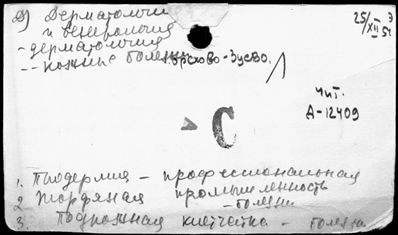 Д) Дерматология
и венерология
- дерматология
-- кожные болезни
Орехово-Зуево.
25/XII 51
Чит.
А-12409
С
1. Пиодермия - профессиональная
2. Торфяная промышленность
- болезни
3. Подкожная клетчатка - болезни